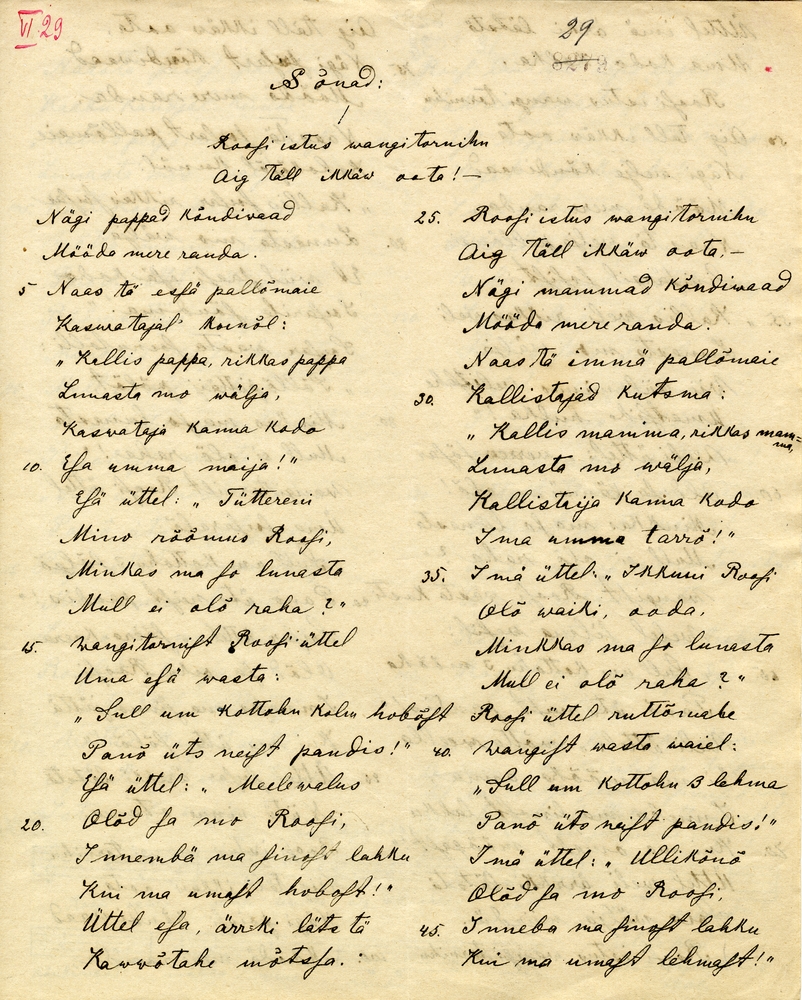 VI 29
29
Sõnad:
Roosi istus wangitornihn
Aig täll ikkäw oota! —
Nägi pappad kõndiwaad
Mööda mere randa.
5 Naas tä essä pallõmaie
Kaswatajal' koʹnõl:
„Kallis pappa, rikkas pappa
Lunasta mo wälja,
Kaswataja kanna kodo
10. Esa umma maija!"
Esä üttel: „Tüttereni
Mino rõõmus Roosi,
Minkas ma so lunasta
Mull ei olõ raha?"
15. Wangitornist Roosi üttel
Uma esä wasta:
„Sull um kottohn kolm hobõst
Panõ üts neist pandis!"
Esä üttel: „Meelewalus
20. Olõd sa mo Roosi,
Innembä ma sinost lahku
Kui ma umast hobost!"
Üttel esa, ärrki läts tä
Kawwõtahe mõtssa.:
25. Roosi istus wangitornihn
Aig täll ikkäw oota, —
Nägi mammad kõndiwaad
Mööda mere randa.
Naas tä immä pallõmaie
30. Kallistajad kutsma:
„Kallis mamma, rikkas mam=
ma,
Lunasta mo wälja,
Kallistaija kanna kodo
Ima umma tarrõ!"
35. Imä üttel: „Ikkuni Roosi
Olõ waiki, ooda,
Minkkas ma so lunasta
Mull ei olõ raha?"
Roosi üttel ruttõmahe
40. Wangist wasta waiel:
„Sull um kottohn 3 lehma
Panõ üts neist pandis!"
Imä üttel: „Ullikõnõ
Olõd sa mo Roosi,
45. Inneba ma sinost lahku
Kui ma umast lehmast!"